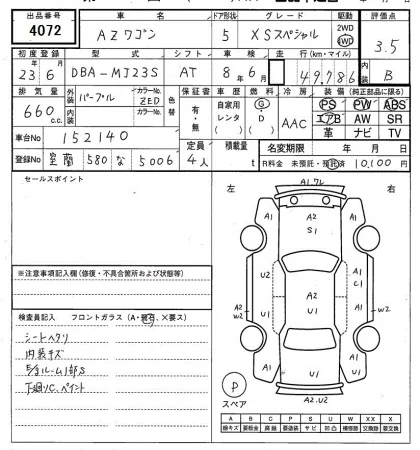 出品番号 車名 ドア形状 グレード 駆動 評価点
4072 AZワゴン 5 XSスペシャル 2WD 4WD 3.5
初度登録 型式 シフト 車検 走行(km・マイル) 内装
23年6月 DBA-MJ23S AT 8年6月 49,786 B
排気量 外装 パープル カラーNo. ZED 色替 保証書 車歴 燃料 冷房 装備(純正部品に限る)
660 c.c. 内装 カラーNo. 有・無 自家用 レンタ ( ) G・D ( ) AAC PS PW ABS
エアB AW SR
革 ナビ TV
車台No 152140 定員 積載量 名変期限 年 月 日
登録No 室蘭 580 な 5006 4人 t R料金 未預託・預託済 10,100円
セールスポイント
左 右
A1.ワレ
A1 A2 S1 A1
U2 A1 C1
A2 W2 A1 U2 U1 A1 W2
U1 U1 U1
A2.U2
P
スペア
※注意事項記入欄(修復・不具合箇所および状態等)
検査員記入 フロントガラス(A・飛石、×要ス)
シートヘタリ
内装キズ
下廻りC、ペイント
A B C P S U W X XX
線キズ 要板金 腐蝕 要塗装 サビ 凹凸 補修跡 交換跡 要交換